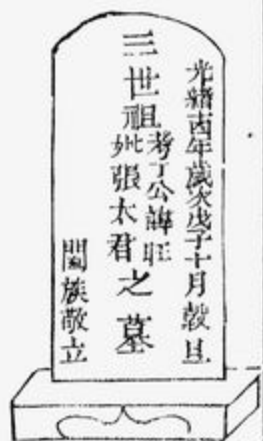 光緒丙年歲次戊子十月穀旦
三世祖
考丁公諱旺
妣張太君
之墓
闔族敬立